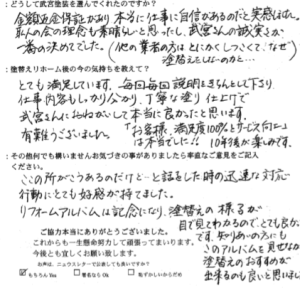 : どうして武宮塗装を選んでくれたのですか?
全額返金保証があり本当に仕事に自信があるのだと実感した。
私の会の理念も素晴らしと思ったし、武宮さんの誠実さが
一番の決めてでした。(他の業者の方はとにかくしつこくて、なぜ
塗替えとし
: 塗替えリホーム後の今の気持ちを教えて?
とても満足しています。毎回毎回説明もきちんとして下さり
仕事内容もしっかり分かり、丁寧な塗り仕上げで
武宮さんにおねがいして本当に良かったと思います。
有難うございました。「お客様、満足度100%とサービス向上」
は本当でした!! 10年後が楽しみです。
: その他何でも構いませんお気づきの事がありましたら率直なご意見をご記入
ください。
この所がこうあるのだけど…と話をした時の迅速な対応
行動にとても好感が持てました。
リフォームアルバムは記念になり、塗替えの様子が
目で見てわかるので、とても良かった
です。知りあいの方にも
このアルバムを見せながら
塗替えのおすすめが
出来るのも良いと思いました
ご協力本当にありがとうございました。
これからも一生懸命努力して頑張ってまいります。
今後とも宜しくお願い致します。
お声は、ニュースレターで公表しても良いですか?
もちろん Yes 匿名なら Ok 恥ずかしいからだめ